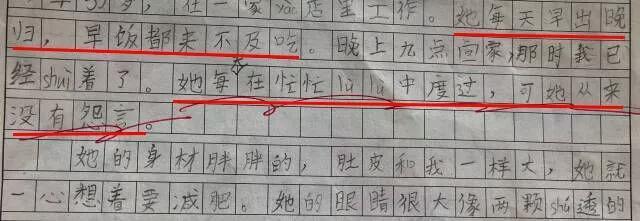 岁，在一家店里工作。她每天早出晚
归，早饭都来不及吃。晚上九点回家，那时我已
经shui着了。她每天在忙忙lulu中度过，可她从来
没有怨言。
她的身材胖胖的，肚皮和我一样大，她就
一心想着要减肥。她的眼睛很大像两颗shú透的